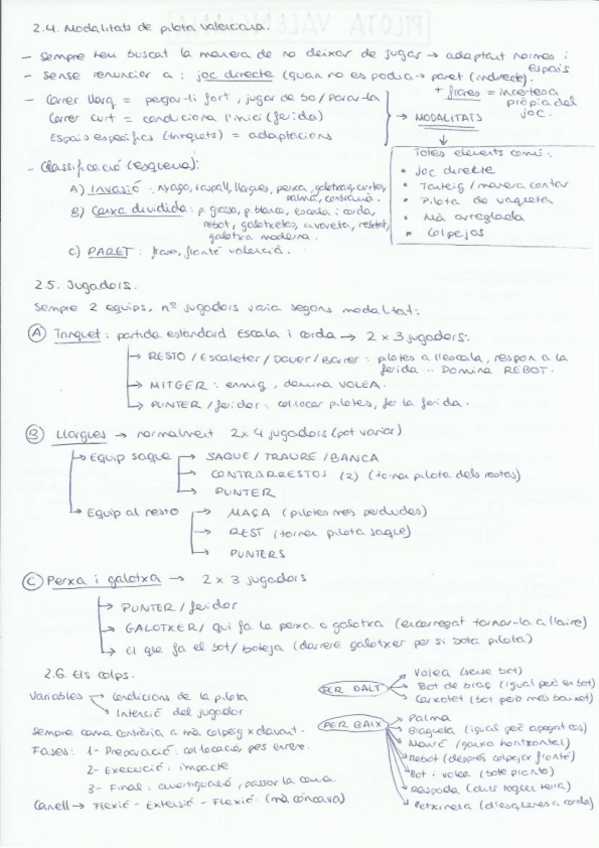 2.4. Modalitats de pilota valenciana.
- Sempre s'eu buscat la manera de no deixar de jugar → adaptant normes i espais
- Sense renunciar a : joc directe (quan no es podia → paret (indirecte).
+ frares = incertesa pròpia del joc.
- Correr llarg = pegar-li fort, jugar de bo / parar-la
Correr curt = condiciona l'inici (ferida)
Espais específics (trinquets) = adaptacions
→ MODALITATS
Totes elements comú:
• Joc directe
• Tanteig / manera contar
• Pilota de vaqueta
• Mà arreglada
• Colpejos
- Classificació (esquema):
A) Invasió : nyago, raspall, llargues, perxa, galotxa, curtes, palma, contramà.
B) Canxa dividida : p. grossa, p. blanca, escala i corda, rebot, galotxetes, a voreta, galotxa moderna.
C) PARET : frare, frontó valencià.
2.5. Jugadors.
Sempre 2 equips, nº jugadors varia segons modalitat:
A Trinquet : partida estàndard Escala i corda → 2 x 3 jugadors:
→ RESTO / Escaleter / Dauer / Banxer : pilotes a l'escala, respon a la ferida ... Domina REBOT.
→ MITGER : enmig, domina VOLEA.
→ PUNTER / feridor : col·locar pilotes, fer la ferida.
B Llargues → normalment 2x4 jugadors (pot variar)
→ Equip saque → SAQUE / TRAURE / BANCA
→ CONTRARRESTOS (2) (tornar pilota dels restos)
→ PUNTER
→ Equip al resto → MAÇA (pilotes més perdudes)
→ REST (tornar pilota saque)
→ PUNTERS
C Perxa i galotxa → 2 x 3 jugadors
→ PUNTER / feridor
→ GALOTXER / qui fa la perxa o galotxa (encarregat tornar-la a l'aire)
→ El que fa el bot / boteja (darrere galotxer per si bota pilota)
2.6. Els colps.
Variables → Condicions de la pilota
→ Intenció del jugador
Sempre cama contrària a mà colpeig x davant.
Fases: 1- Preparació: col·locació, pes enrere.
2- Execució : impacte
3- Final : amortiguació, passar la cama.
Canell → Flexió - Extensió - Flexió. (mà còncava)
PER DALT
→ Volea (sense bot)
→ Bot de braç (igual però en bot)
→ Carxotet (bot però més baixet)
PER BAIX
→ Palma
→ Bragueta (igual però apegat cos)
→ Manró (ganxo horitzontal)
→ Rebot (després colpejar frontó)
→ Bot i volea (bote pronto)
→ Raspada (duts toquen terra)
→ Petxineta (d'esquenes a corda)